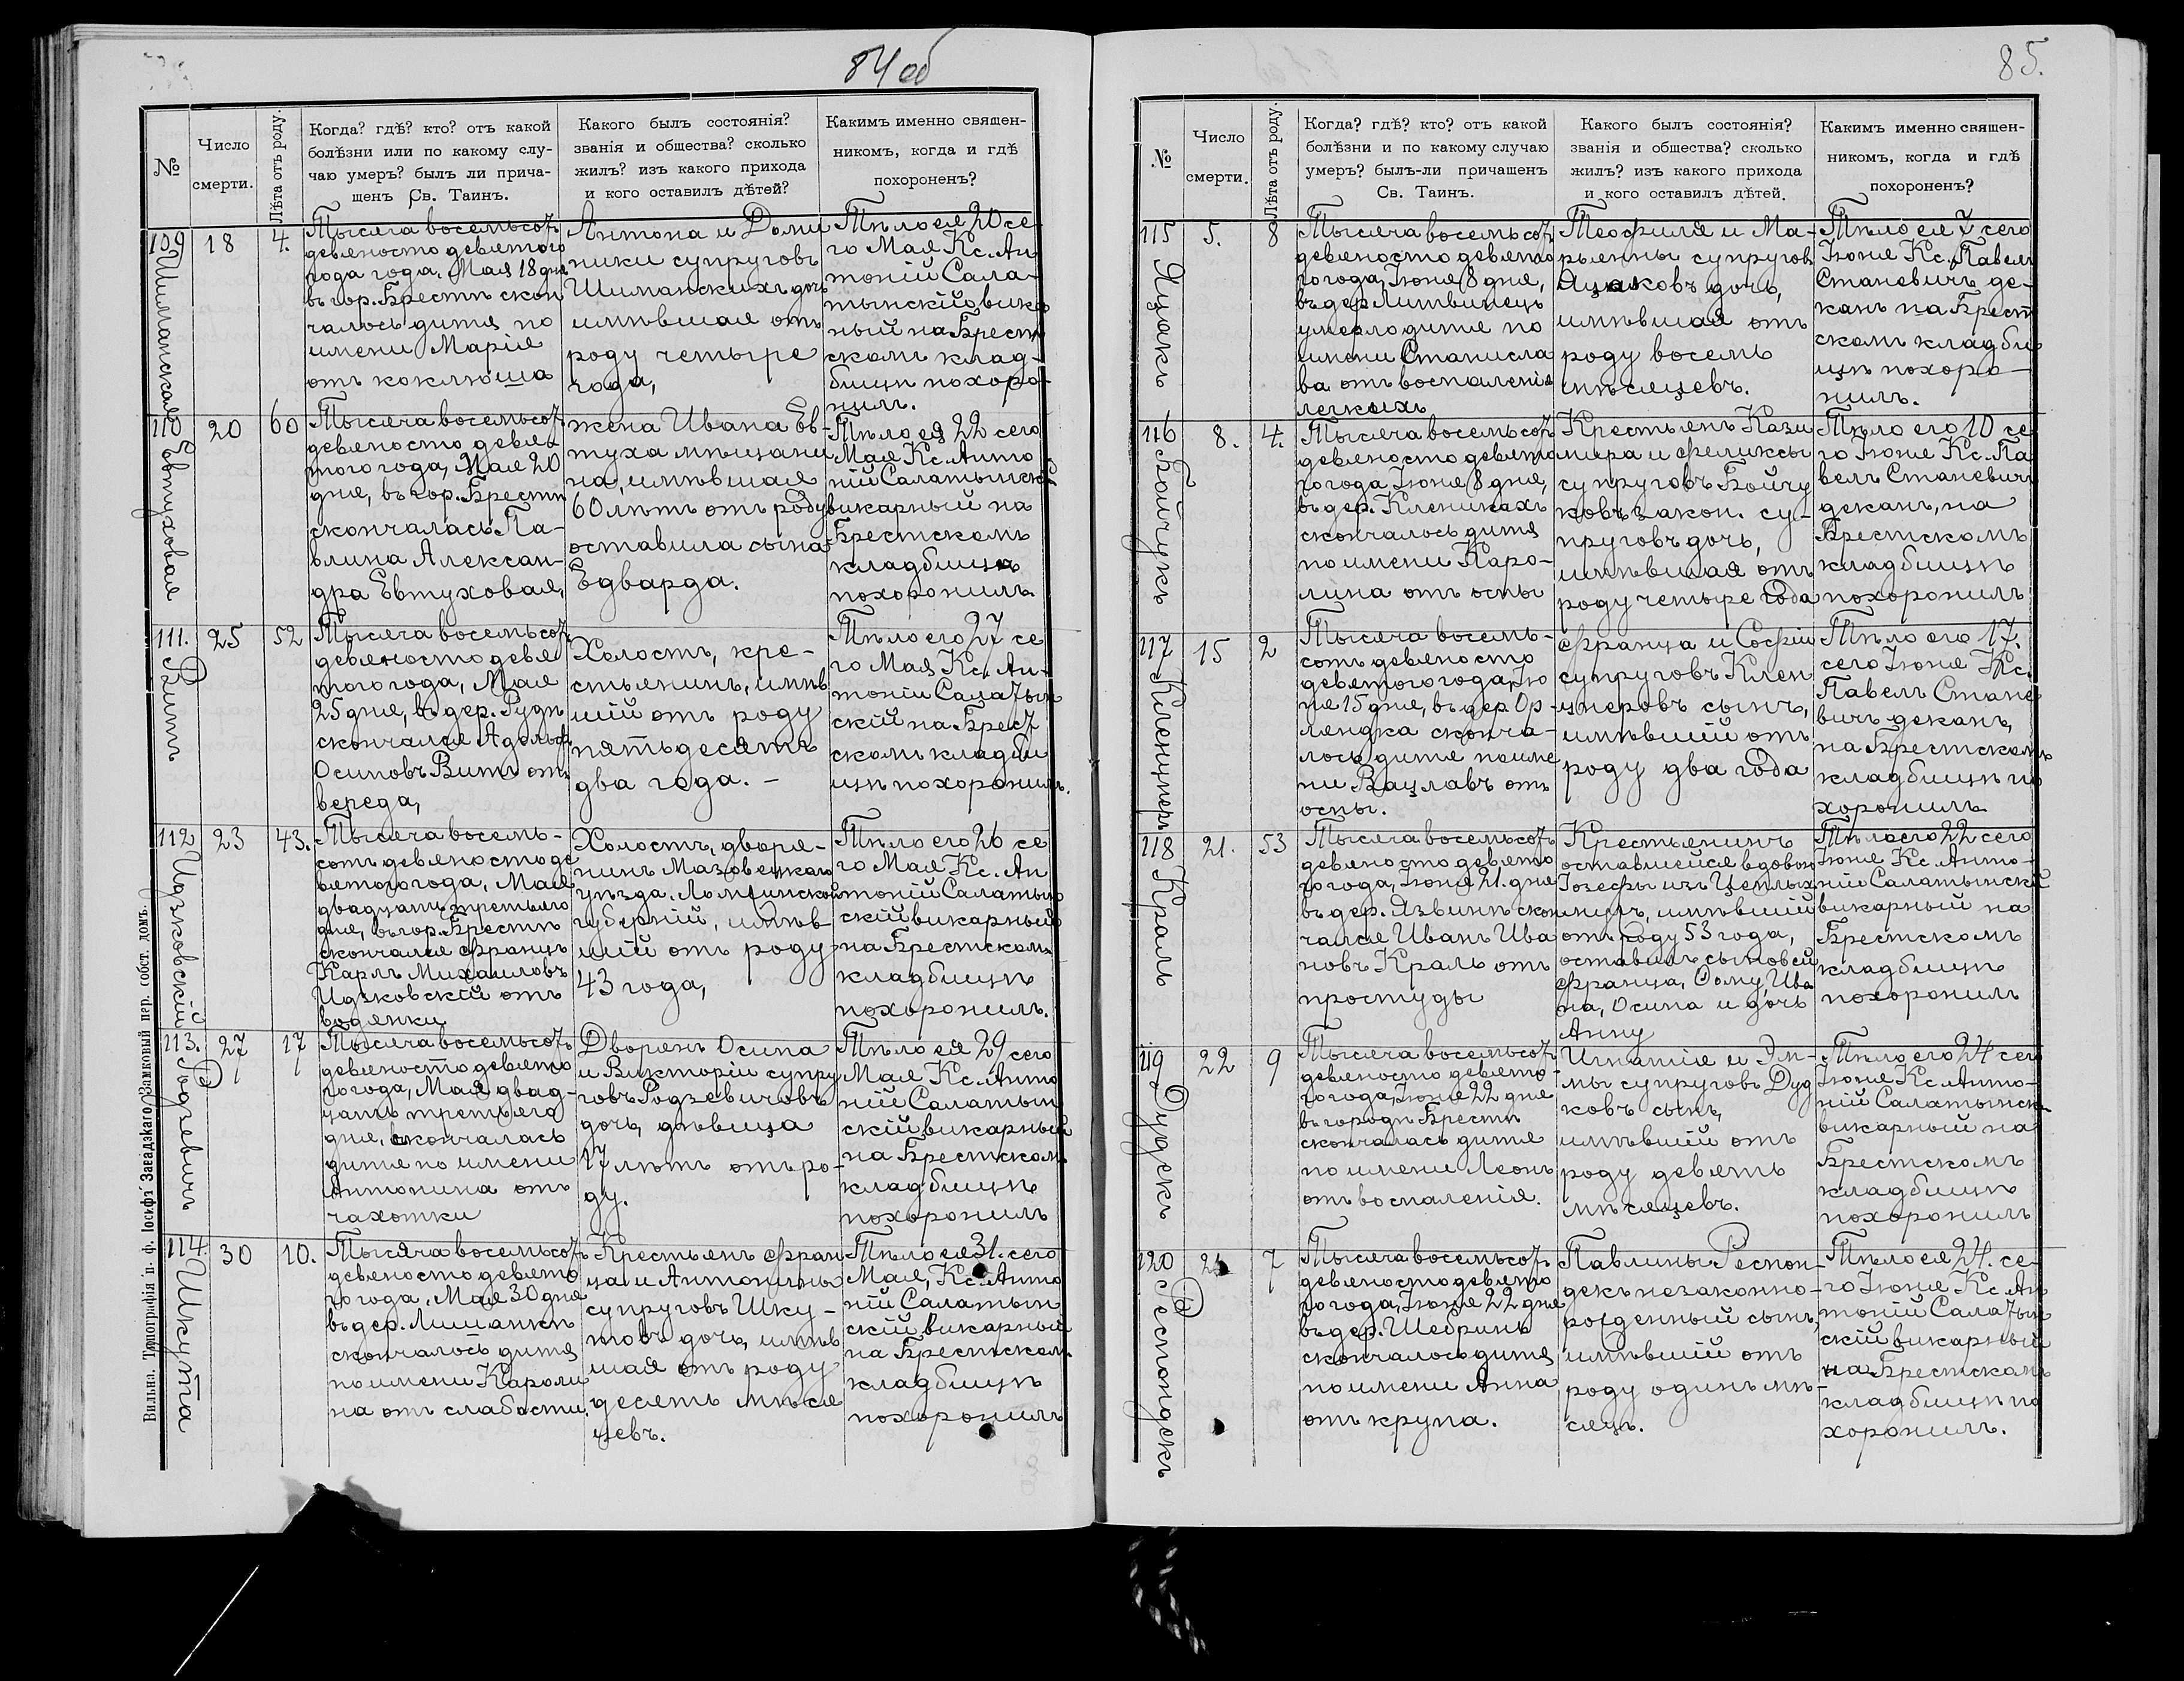 84 об
№
Число
смерти.
Лѣта отъ роду.
Когда? гдѣ? кто? отъ какой
болѣзни или по какому слу-
чаю умеръ? былъ ли прича-
щенъ Св. Таинъ.
Какого былъ состоянія?
званія и общества? сколько
жилъ? изъ какого прихода
и кого оставилъ дѣтей?
Какимъ именно священ-
никомъ, когда и гдѣ
похороненъ?
109
Шиманская
18
4.
Тысяча восемьсотъ
девяносто девятого
года года, Мая 18 дня
въ гор. Брестѣ скон
чалось дитя по
имени Марія
отъ коклюша
Антона и Доми
ники супруговъ
Шиманскихъ дочь
имѣвшая отъ
роду четыре
года,
Тѣло ея 20 се
го Мая Кс. Ан
тоній Сала-
тынскій вика
ный на Брест
скомъ клад-
бищѣ похоро-
нилъ.
110
Евтуховая
20
60
Тысяча восемьсотъ
девяносто девя
того года, Мая 20
дня, въ гор. Брестѣ
скончалась Па-
влина Алексан-
дра Евтуховая,
жена Ивана Ев-
туха мѣщани
на, имѣвшая
60 лѣтъ отъ роду
оставила сына
Едварда.
Тѣло ея 22 сего
Мая Кс. Анто
ній Салатынскій
викарный на
Брестскомъ
кладбищѣ
похоронилъ
111.
Витъ
25
52
Тысяча восемьсотъ
девяносто девя
того года, Мая
25 дня, въ дер. Руднѣ
скончался Адольфъ
Осиповъ Витъ отъ
вереда,
Холостъ, кре-
стьянинъ, имѣв
шій отъ роду
пятьдесятъ
два года. -
Тѣло его 27 се
го Мая Кс. Ан-
тоній Салатын
скій на Брест
скомъ кладби
щѣ похоронилъ.
112
Идзковскій
23
43.
Тысяча восемь-
сотъ девяносто де
вятого года, Мая
двадцать третьяго
дня, въ гор. Брестѣ
скончался Францъ
Карлъ Михаиловъ
Идзковскій отъ
водянки
Холостъ, дворя-
нинъ Мазовецкаго
уѣзда. Ломжинской
губерній, имѣв-
шій отъ роду
43 года,
Тѣло его 26 се
го Мая Кс. Ан
тоній Салатын
скій викарный
на Брестскомъ
кладбищѣ
похоронилъ.
113.
Родзевичъ
27
17
Тысяча восемьсотъ
девяносто девято
го года, Мая двад-
цать третьяго
дня, скончалась
дитя по имени
Антонина отъ
чахотки
Дворянъ Осипа
и Викторіи супру
говъ Родзевичовъ
дочь, дѣвица
17 лѣтъ отъ ро-
ду.
Тѣло ея 29 сего
Мая Кс. Анто
ній Салатын
скій викарный
на Брестскомъ
кладбищѣ
похоронилъ
114.
Шкута
30
10.
Тысяча восемьсотъ
девяносто девято
го года, Мая 30 дня
въ дер. Лишанкѣ
скончалось дитя
по имени Кароли
на отъ слабости.
Крестьянъ Фран
ца и Антонины
супруговъ Шку-
товъ дочь, имѣв
шая отъ роду
десять мѣся
цевъ.
Тѣло ея 31. сего
Мая, Кс. Анто
ній Салатын
скій викарный
на Брестскомъ
кладбищѣ
похоронилъ
Вильна. Типографія п. ф. Іосифъ Завадзкаго, Замковый пер. собст. домъ.
85.
№
Число
смерти.
Лѣта отъ роду.
Когда? гдѣ? кто? отъ какой
болѣзни и по какому случаю
умеръ? былъ-ли причащенъ
Св. Таинъ.
Какого былъ состоянія?
званія и общества? сколько
жилъ? изъ какого прихода
и кого оставилъ дѣтей.
Какимъ именно священ-
никомъ, когда и гдѣ
похороненъ?
115
Яцакъ
5.
8
Тысяча восемьсотъ
девяносто девято
го года, Іюня 8 дня,
въ дер. Литвинецъ
умерло дитя по
имени Станисла
ва отъ воспаленія
легкихъ
Теофиля и Ма-
рьянны супруговъ
Яцаковъ дочь,
имѣвшая отъ
роду восемь
мѣсяцевъ.
Тѣло ея 7 сего
Іюня Кс. Павелъ
Станевичъ де-
канъ на Брест
скомъ кладби
щѣ похоро-
нилъ.
116
Бойчукъ
8.
4.
Тысяча восемьсотъ
девяносто девято
го года Іюня 8 дня,
въ дер. Кленикахъ
скончалось дитя
по имени Каро-
лина отъ оспы
Крестьянъ Кази
мира и Феликсы
супруговъ Бойчу
ковъ закон. су-
пруговъ дочь,
имѣвшая отъ
роду четыре года
Тѣло его 10 се
го Іюня Кс. Па
велъ Станевичъ
деканъ, на
Брестскомъ
кладбищѣ
похоронилъ
117
Кленцнеръ
15
2
Тысяча восемь-
сотъ девяносто
девятого года, Ію
ня 15 дня, въ дер. Ор-
лендка сконча-
лось дитя по име
ни Вацлавъ отъ
оспы.
Франца и Софіи
супруговъ Клен
цнеровъ сынъ,
имѣвшій отъ
роду два года
Тѣло его 17.
сего Іюня Кс.
Павелъ Стане
вичъ деканъ,
на Брестскомъ
кладбищѣ по
хоронилъ
118
Краль
21.
53
Тысяча восемьсотъ
девяносто девято
го года, Іюня 21. дня
въ дер. Язвинѣ скон
чался Иванъ Ива
новъ Краль отъ
простуды
Крестьянинъ
оставшейся вдовою
Іозефы изъ Цеплых
имѣвшій
отъ роду 53 года,
оставилъ сыновей
Франца, Фому, Ива
на, Осипа и дочь
Анну
Тѣло его 22 сего
Іюня Кс. Анто-
ній Салатынскій
викарный на
Брестскомъ
кладбищѣ
похоронилъ
119
Дудекъ
22
9
Тысяча восемьсотъ
девяносто девято-
го года, Іюня 22 дня
въ городѣ Брестѣ
скончалась дитя
по имени Леонъ
отъ воспаленія.
Игнатія и Эм-
мы супруговъ Дуд
ковъ сынъ,
имѣвшій отъ
роду девять
мѣсяцевъ.
Тѣло его 24 сего
Іюня Кс. Анто-
ній Салатынскій
викарный на
Брестскомъ
кладбищѣ
похоронилъ
120
Респондекъ
7
Тысяча восемьсотъ
девяносто девято
го года, Іюня 22 дня
въ дер. Шебринъ
скончалось дитя
по имени Анна
отъ крупа.
Павлины Респон-
декъ незаконно-
рожденный сынъ,
имѣвшій отъ
роду одинъ мѣ-
сяцъ.
Тѣло ея 24. се-
го Іюня Кс. Ан
тоній Салатын
скій викарный
на Брестскомъ
кладбищѣ по
хоронилъ.